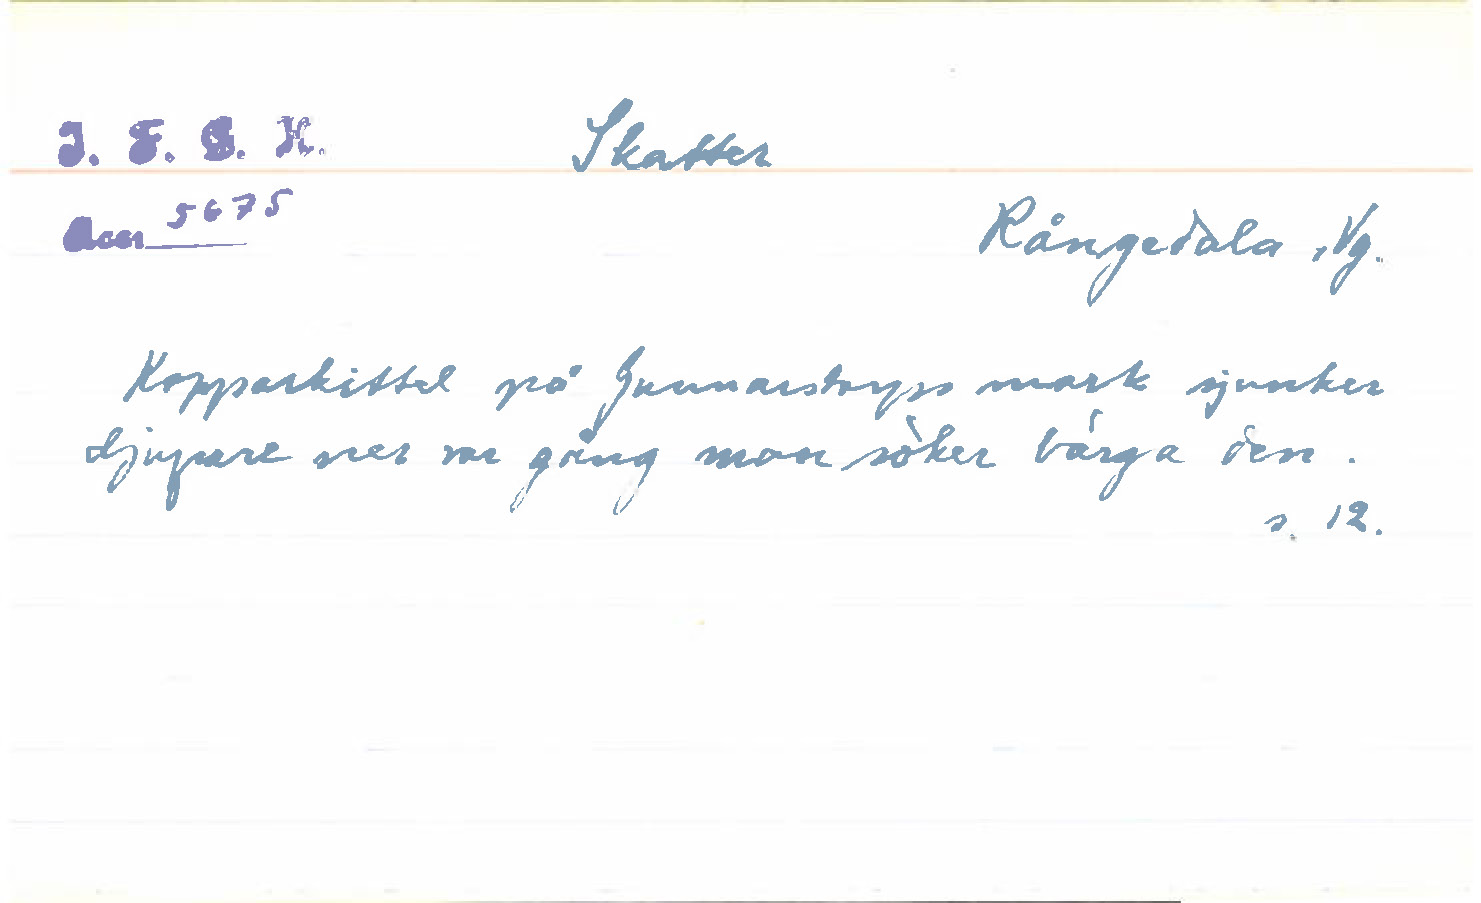 I. F. G. H.
Skatter
Acc. 5675
Rångedala, Vg.
Kopparkittel på Gunnarstorps mark sjunker
djupare ner var gång man söker bärga den.
s. 12.